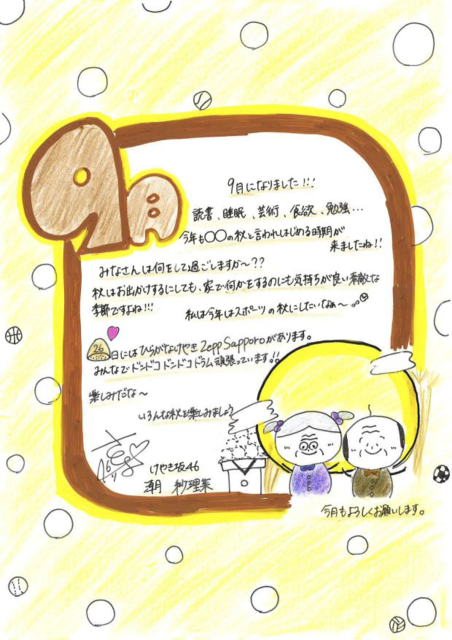 9月
9月になりました!!!
読書、睡眠、芸術、食欲、勉強...
今年も〇〇の秋と言われはじめる時期が
来ましたね!!
みなさんは何をして過ごしますか〜??
秋はお出かけするにしても、家で何かをするのにも気持ちが良い素敵な
季節ですよね!!!
私は今年はスポーツの秋にしたいなぁ〜
26日にはひらがなけやき Zepp Sapporoがあります。
みんなでドンドコドンドコドラム頑張っています!!
楽しみだな〜
いろんな秋を楽しみましょう
けやき坂46
潮 紗理菜
今月もよろしくお願いします。